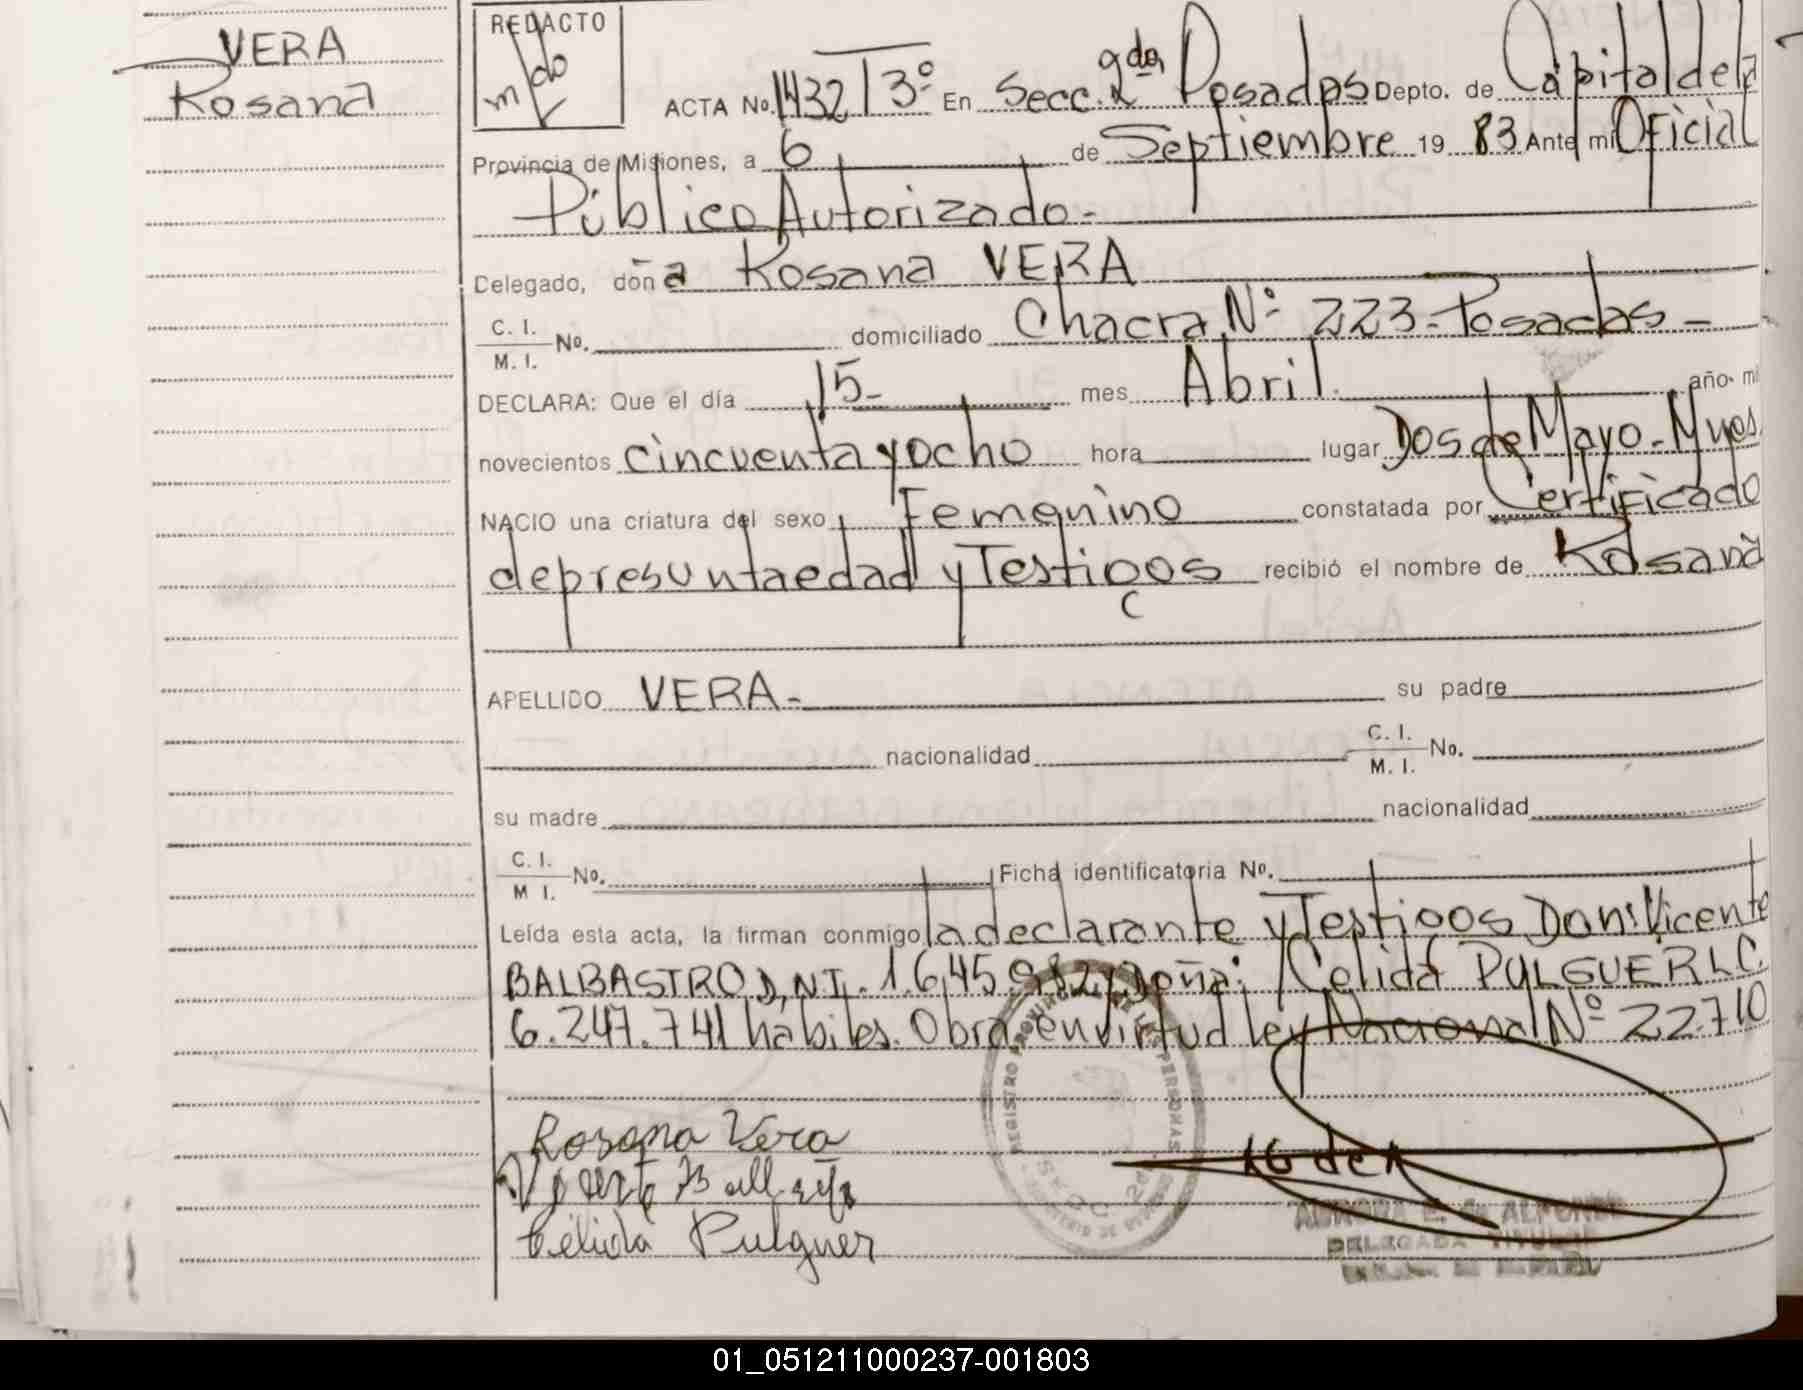 VERA
Rosana
REDACTO
ACTA No. 1432 T 3º En Secc. 2da Posadas Depto. de Capital de la
Provincia de Misiones, a 6 de Septiembre 19 83 Ante mi Oficial
Público Autorizado-
Delegado, doña Rosana VERA
C. I. M. I. No. domiciliado Chacra Nº 223-Posadas-
DECLARA: Que el día 15- mes Abril. año mi
novecientos cincuenta y ocho hora lugar Dos de Mayo-Mnes.
NACIO una criatura del sexo Femenino constatada por Certificado
de presunta edad y Testigos recibió el nombre de Rosana
APELLIDO VERA- su padre
nacionalidad C. I. M. I. No.
su madre nacionalidad
C. I. M I. No. Ficha identificatoria No.
Leída esta acta, la firman conmigo la declarante y Testigos Don: Vicente
BALBASTRO D.N.I. 1.645.982 y Doña: Celida PULGUER L.C.
6.247.741 hábiles. Obra en virtud ley Nacional Nº 22.710
REGISTRO PROVINCIAL DE LAS PERSONAS
SECC. 2da
Rosana Vera
Célida Pulguer
AURORA E. de ALFONSO
DELEGADA TITULAR
01_051211000237-001803